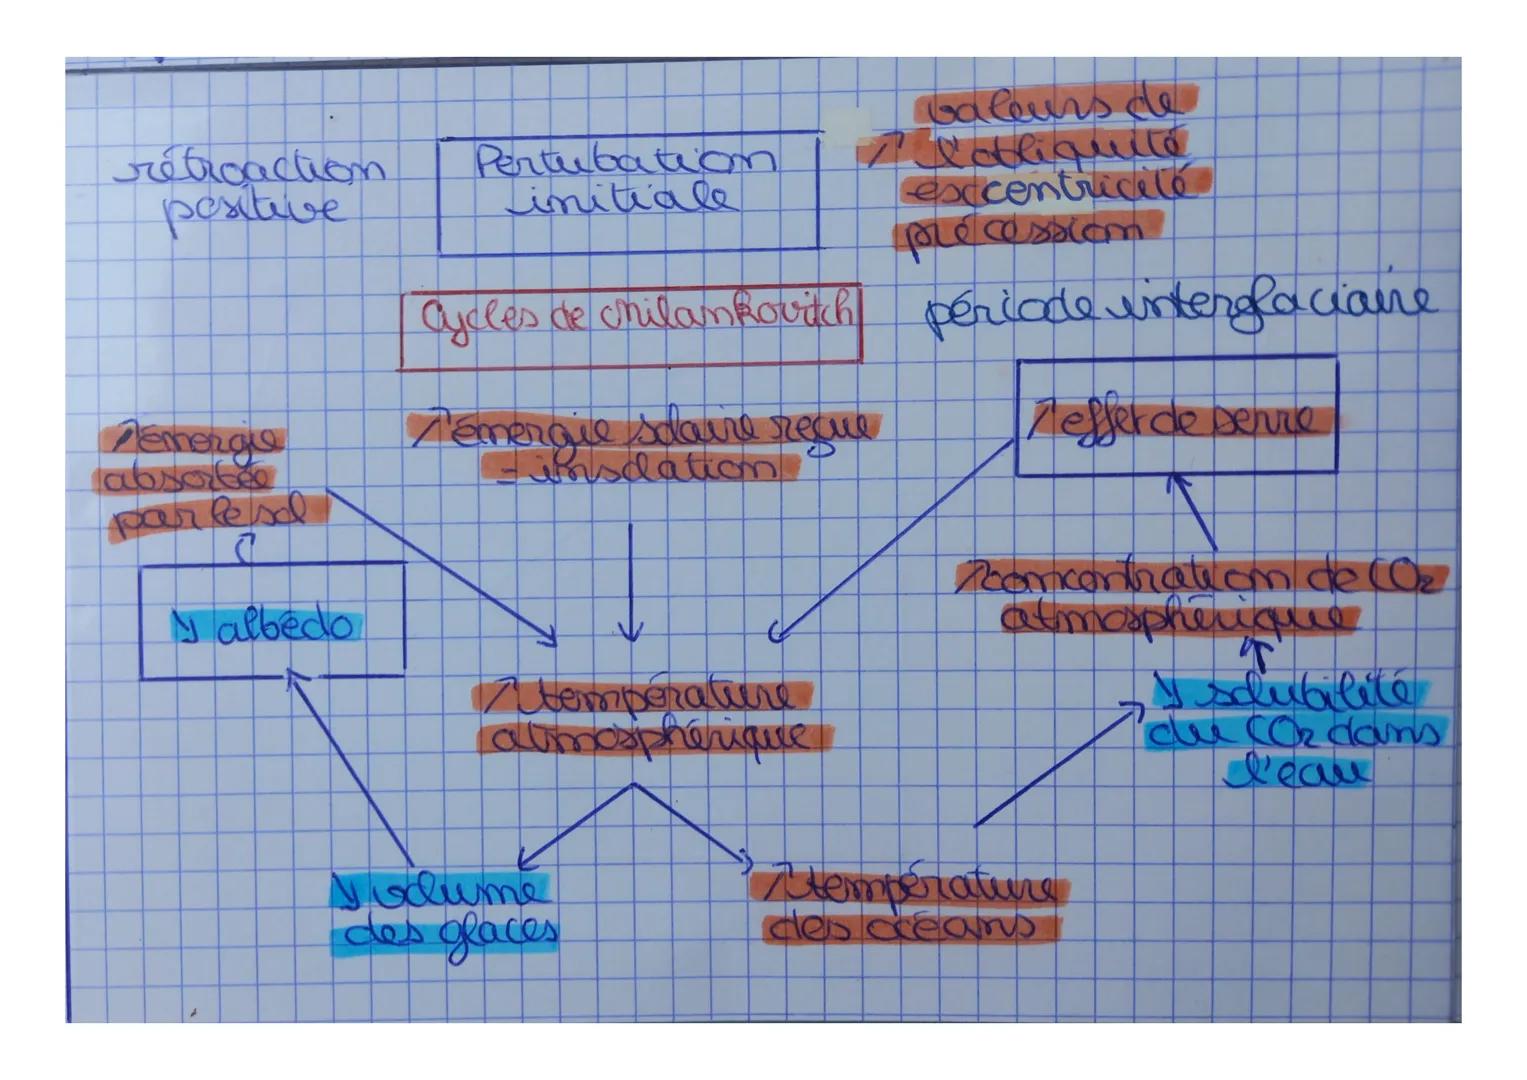 rétroaction
positive
Pertubation
initiale
valeurs de
↗ l'obliquité
excentricité
précession
Cycles de Milankovitch
période interglaciaire
↗ énergie
absorbée
par le sol
↗ énergie solaire reçue
= insolation
↗ effet de serre
↘ albédo
↗ concentration de CO2
atmosphérique
↗ température
atmosphérique
↘ solubilité
du CO2 dans
l'eau
↘ volume
des glaces
↗ température
des océans